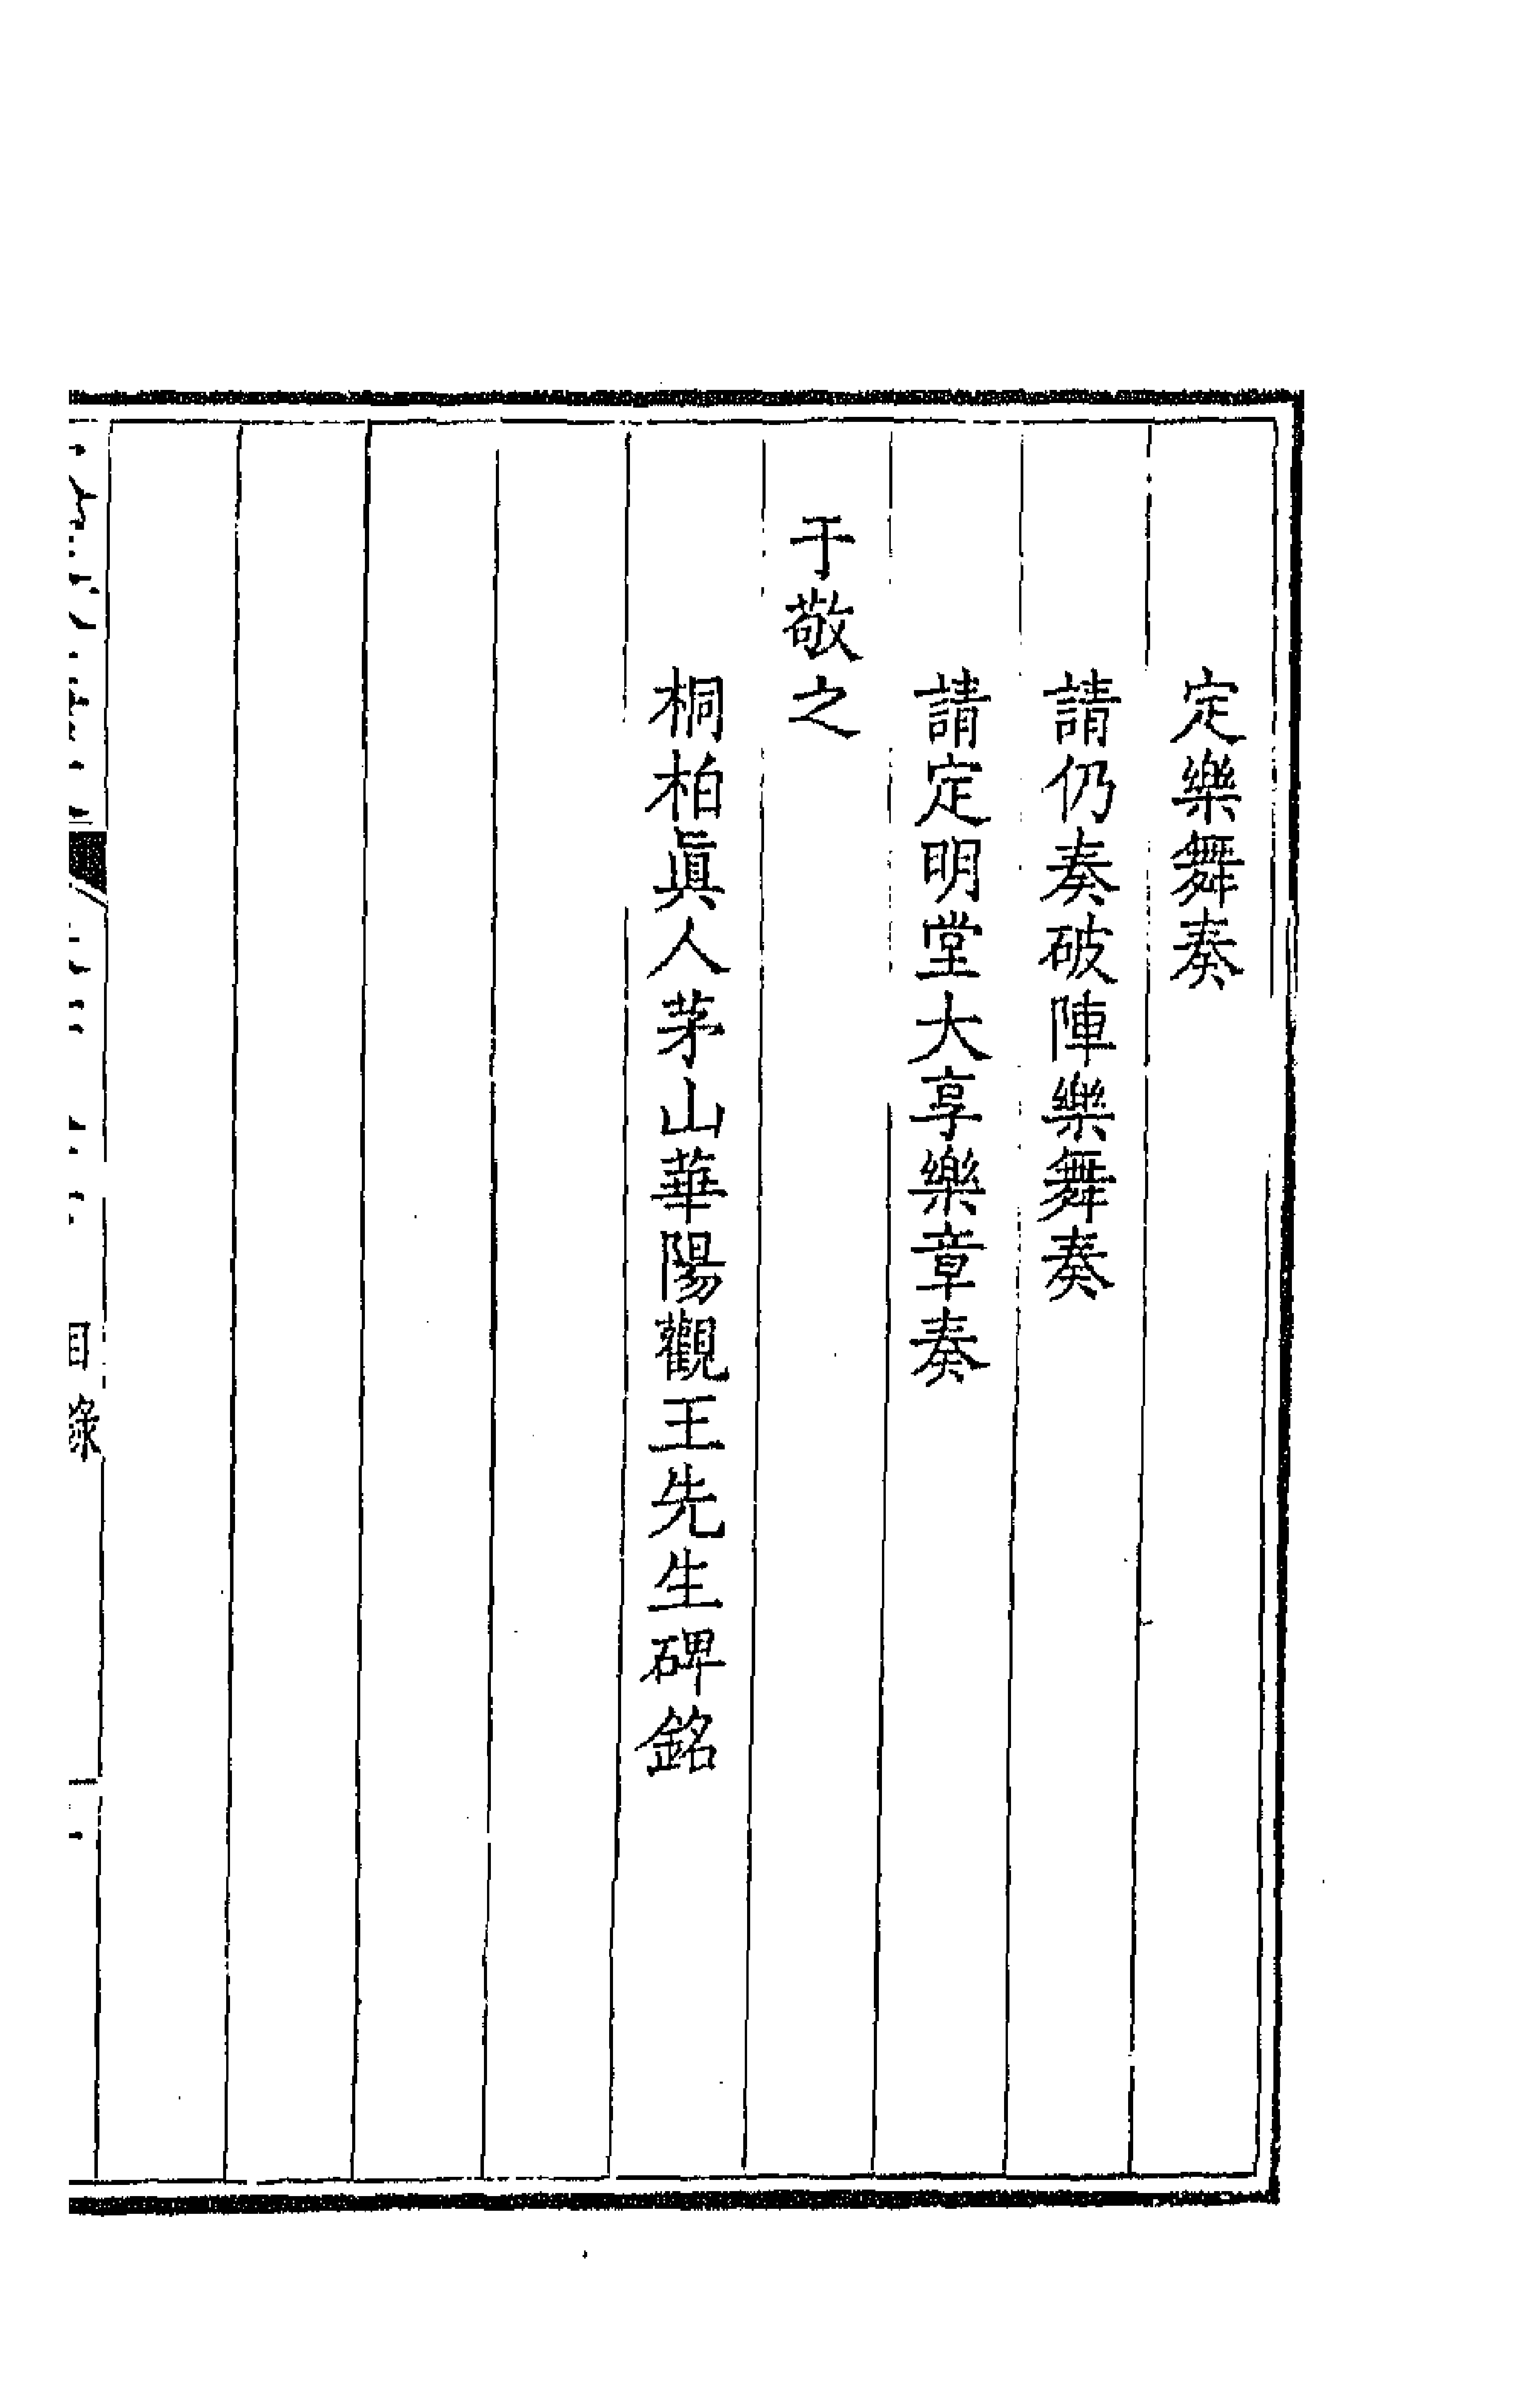 定樂舞奏
請仍奏破陣樂舞奏
請定明堂大享樂章奏
于敬之
桐柏眞人茅山華陽觀王先生碑銘
目錄